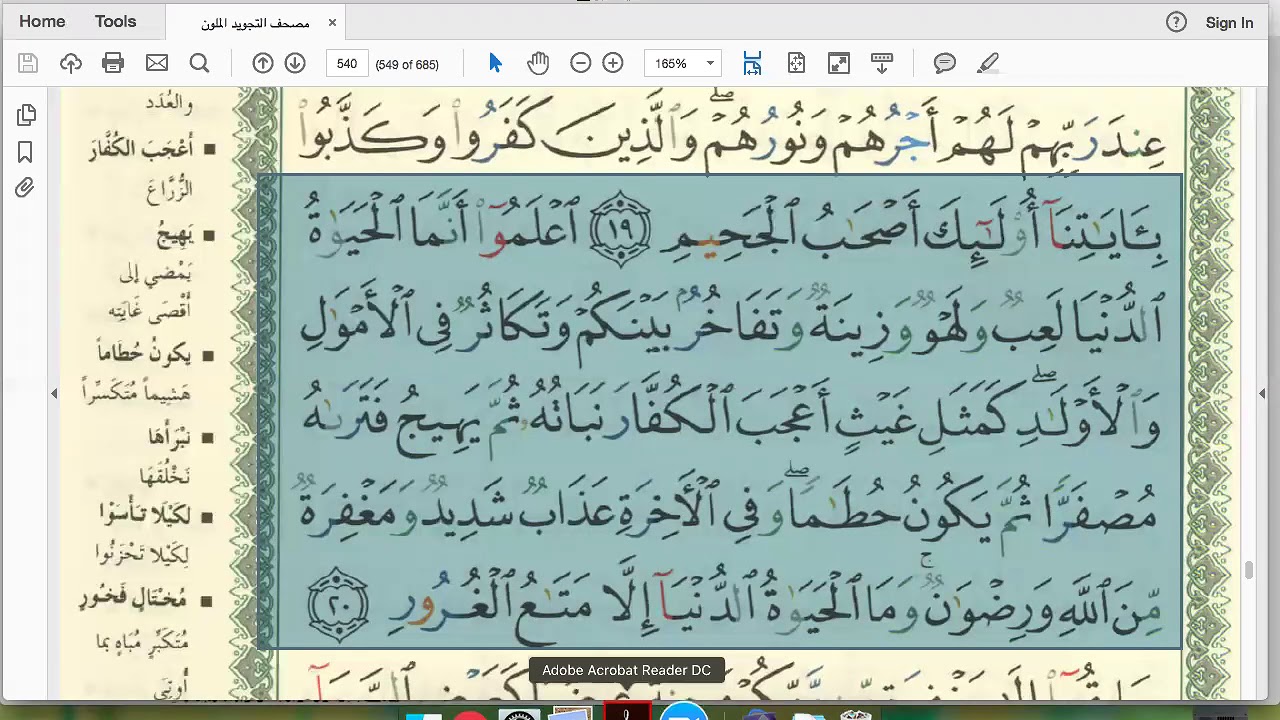 Home Tools مصحف التجويد الملون × ? Sign In
540 (549 of 685) 165%
عِندَ رَبِّهِمْ لَهُمْ أَجْرُهُمْ وَنُورُهُمْ ۖ وَٱلَّذِينَ كَفَرُوا۟ وَكَذَّبُوا۟
بِـَٔايَـٰتِنَآ أُو۟لَـٰٓئِكَ أَصْحَـٰبُ ٱلْجَحِيمِ ١٩ ٱعْلَمُوٓا۟ أَنَّمَا ٱلْحَيَوٰةُ
ٱلدُّنْيَا لَعِبٌ وَلَهْوٌ وَزِينَةٌ وَتَفَاخُرٌۢ بَيْنَكُمْ وَتَكَاثُرٌ فِى ٱلْأَمْوَٰلِ
وَٱلْأَوْلَـٰدِ ۖ كَمَثَلِ غَيْثٍ أَعْجَبَ ٱلْكُفَّارَ نَبَاتُهُۥ ثُمَّ يَهِيجُ فَتَرَىٰهُ
مُصْفَرًّا ثُمَّ يَكُونُ حُطَـٰمًا ۖ وَفِى ٱلْـَٔاخِرَةِ عَذَابٌ شَدِيدٌ وَمَغْفِرَةٌ
مِّنَ ٱللَّهِ وَرِضْوَٰنٌ ۚ وَمَا ٱلْحَيَوٰةُ ٱلدُّنْيَآ إِلَّا مَتَـٰعُ ٱلْغُرُورِ ٢٠
والعُدَد
أَعْجَبَ الكُفَّارَ
الزُّرَّاعَ
يَهِيجُ
يَمْضي إلى
أَقْصَى غَايَتِه
يكونُ حُطَاماً
هَشِيماً مُتَكَسِّراً
نَبْرَأَهَا
نَخْلُقَهَا
لكَيْلا تأسَوْا
لِكَيْلا تَحْزَنُوا
مُخْتَالٍ فَخُورٍ
مُتَكَبِّرٍ مُبَاهٍ بما
أُوتِيَ
Adobe Acrobat Reader DC